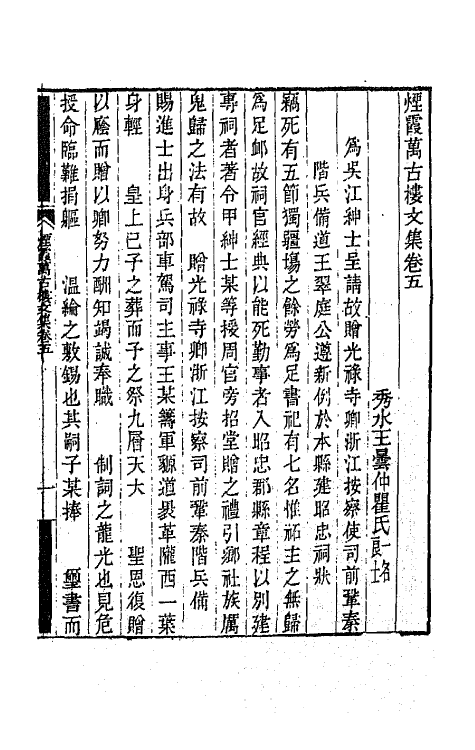 煙霞萬古樓文集卷五
秀水王曇仲瞿氏良士
爲吳江紳士呈請故贈光祿寺卿浙江按察使司前鞏秦
階兵備道王翠庭公遵新例於本縣建昭忠祠狀
竊死有五節獨疆埸之餘勞爲足書祀有七名惟祏主之無歸
爲足卹故祠官經典以能死勤事者入昭忠郡縣章程以別建
專祠者著令甲紳士某等援周官旁招堂贈之禮引鄉社族厲
鬼歸之法有故 贈光祿寺卿浙江按察司前鞏秦階兵備
賜進士出身兵部車駕司主事王某籌軍豲道裹革隴西一葉
身輕 皇上已予之葬而予之祭九層天大 聖恩復贈
以廕而贈以卿努力酬知竭誠奉職 制詞之龍光也見危
授命臨難捐軀 溫綸之敷錫也其嗣子某捧 璽書而
煙霞萬古樓文集卷五 一